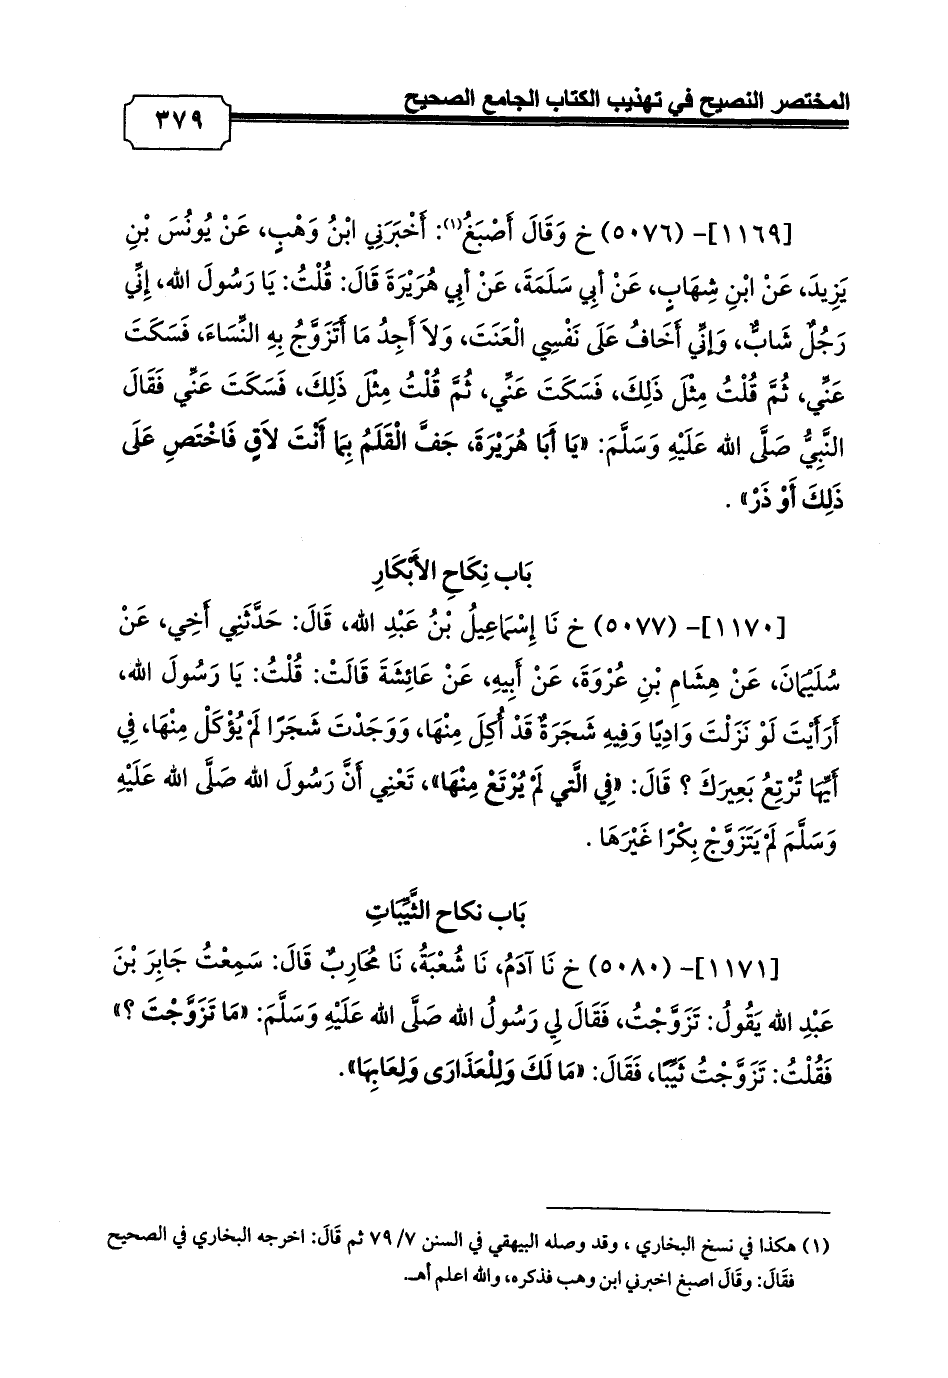 المختصر النصيح في تهذيب الكتاب الجامع الصحيح
٣٧٩
[١١٦٩]- (٥٠٧٦) خ وَقَالَ أَصْبَغُ(١): أَخْبَرَنِي ابْنُ وَهْبٍ، عَنْ يُونُسَ بْنِ
يَزِيدَ، عَنْ ابْنِ شِهَابٍ، عَنْ أبِي سَلَمَةَ، عَنْ أبِي هُرَيْرَةَ قَالَ: قُلْتُ: يَا رَسُولَ الله، إِنِّي
رَجُلٌ شَابٌّ، وَإنِّي أَخَافُ عَلَى نَفْسِي الْعَنَتَ، وَلاَ أَجِدُ مَا أَتَزَوَّجُ بِهِ النِّسَاءَ، فَسَكَتَ
عَنِّي، ثُمَّ قُلْتُ مِثْلَ ذَلِكَ، فَسَكَتَ عَنِّي، ثُمَّ قُلْتُ مِثْلَ ذَلِكَ، فَسَكَتَ عَنِّي فَقَالَ
النَّبِيُّ صَلَّى الله عَلَيْهِ وَسَلَّمَ: «يَا أبَا هُرَيْرَةَ، جَفَّ الْقَلَمُ بِمَا أَنْتَ لاَقٍ فَاخْتَصِ عَلَى
ذَلِكَ أَوْ ذَرْ» .
بَاب نِكَاحِ الأَبْكَارِ
[١١٧٠]- (٥٠٧٧) خ نَا إِسْمَاعِيلُ بْنُ عَبْدِ الله، قَالَ: حَدَّثَنِي أَخِي، عَنْ
سُلَيْمَانَ، عَنْ هِشَامِ بْنِ عُرْوَةَ، عَنْ أَبِيهِ، عَنْ عَائِشَةَ قَالَتْ: قُلْتُ: يَا رَسُولَ الله،
أَرَأَيْتَ لَوْ نَزَلْتَ وَادِيًا وَفِيهِ شَجَرَةٌ قَدْ أُكِلَ مِنْهَا، وَوَجَدْتَ شَجَرًا لَمْ يُؤْكَلْ مِنْهَا، فِي
أَيِّهَا تُرْتِعُ بَعِيرَكَ ؟ قَالَ: «فِي الَّتِي لَمْ يُرْتَعْ مِنْهَا»، تَعْنِي أَنَّ رَسُولَ الله صَلَّى الله عَلَيْهِ
وَسَلَّمَ لَمْ يَتَزَوَّجْ بِكْرًا غَيْرَهَا .
بَاب نكاح الثَّيِّبَاتِ
[١١٧١]- (٥٠٨٠) خ نَا آدَمُ، نَا شُعْبَةُ، نَا مُحَارِبٌ قَالَ: سَمِعْتُ جَابِرَ بْنَ
عَبْدِ الله يَقُولُ: تَزَوَّجْتُ، فَقَالَ لِي رَسُولُ الله صَلَّى الله عَلَيْهِ وَسَلَّمَ: «مَا تَزَوَّجْتَ ؟»
فَقُلْتُ: تَزَوَّجْتُ ثَيِّبًا، فَقَالَ: «مَا لَكَ وَلِلْعَذَارَى وَلِعَابِهَا».
(١) هكذا في نسخ البخاري ، وقد وصله البيهقي في السنن ٧/ ٧٩ ثم قَالَ: اخرجه البخاري في الصحيح
فقَالَ: وقَالَ اصبغ اخبرني ابن وهب فذكره، والله اعلم أهـ.